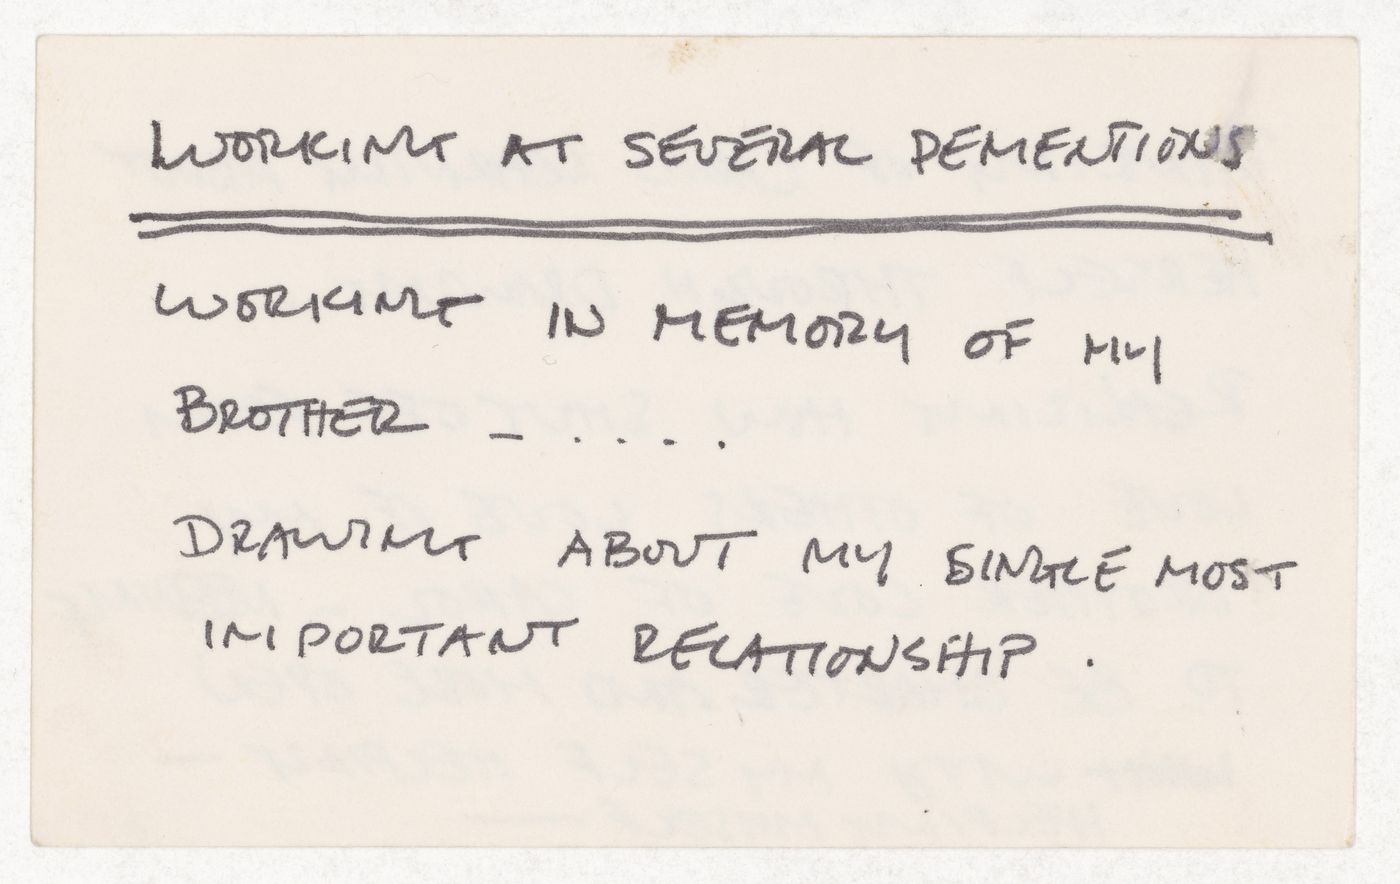 WORKING AT SEVERAL DEMENTIONS
WORKING IN MEMORY OF MY
BROTHER – . . . . .
DRAWING ABOUT MY SINGLE MOST
IMPORTANT RELATIONSHIP .